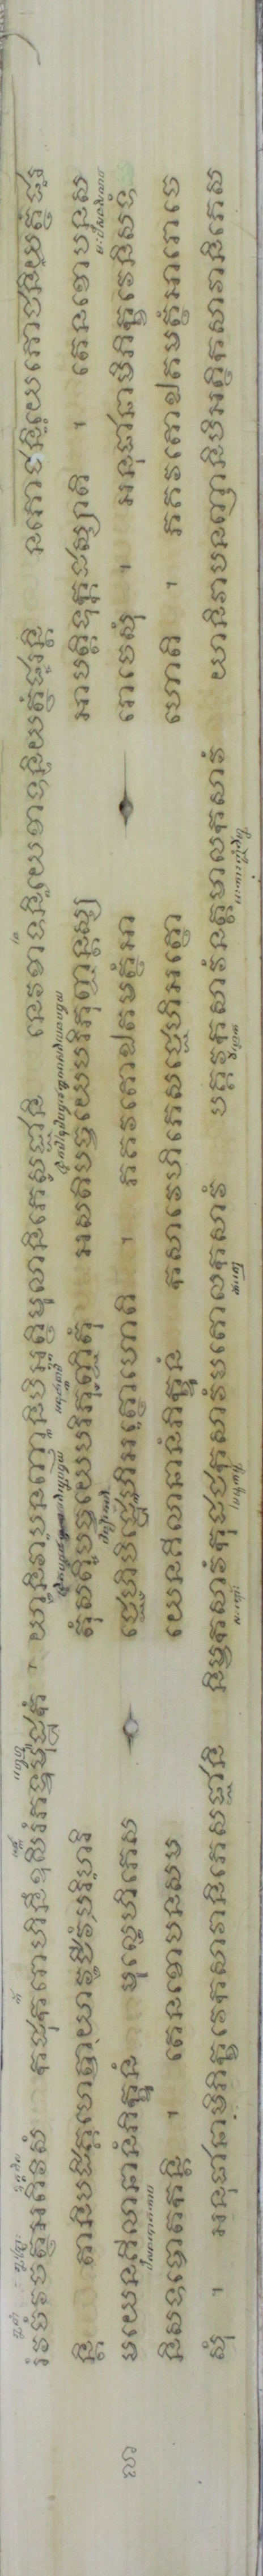 រំវចំវចត្ថំអតិវិសំ កដុករោហិនឹឧសីរំភទ្ទមុដ្ឋកំ ។ យានិវាបនញ្ញានិបិអត្ថិមុលានិភេសជ្ជានិ នេវខាទនិយេខាទនិយត្ថំផរន្តិ នភោជនិយេភោជនិយត្ថំផរ
ន្តិ តានិបដិគ្គហេត្វាយាវជីវំបរិហរិ តុំសតិបច្ចយេបរិភុញ្ជិតុំ អសតិបច្ចយេបរិភុញ្ជន្តស្ស អាបត្តិទុក្កដស្សាតិ ។ តេនខោបនស
មយេនគិលានានំភិក្ខូនំ មុលេហិភេស ជ្ជេហិបិដ្ឋេហិអត្ថោហោតិ ។ ភគវតោឯតមត្ថំអា រោចេសុំ ។ អនុជានាមិភិក្ខវេនិសទំ
និសទបោតកន្តិ ។ តេនខោបនសម យេនគិលានានំភិក្ខូនំ កសាវេហិភេសជ្ជេហិអត្ថោ ហោតិ ។ ភគវតោឯតមត្ថំអារោចេ
សុំ ។ អនុជានាមិភិក្ខវេកសាវានិភេសជ្ជានិ និម្ពកសាវំកុដជកសាវំបតោលកសាវំ បគ្គវកសាវំនត្តមាលកសាវំ យានិវាបនញ្ញានិបិអត្ថិកសាវានិភេស